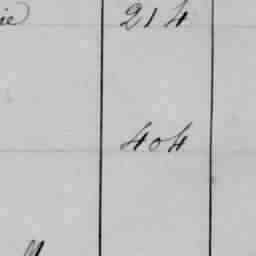 ie 214
404